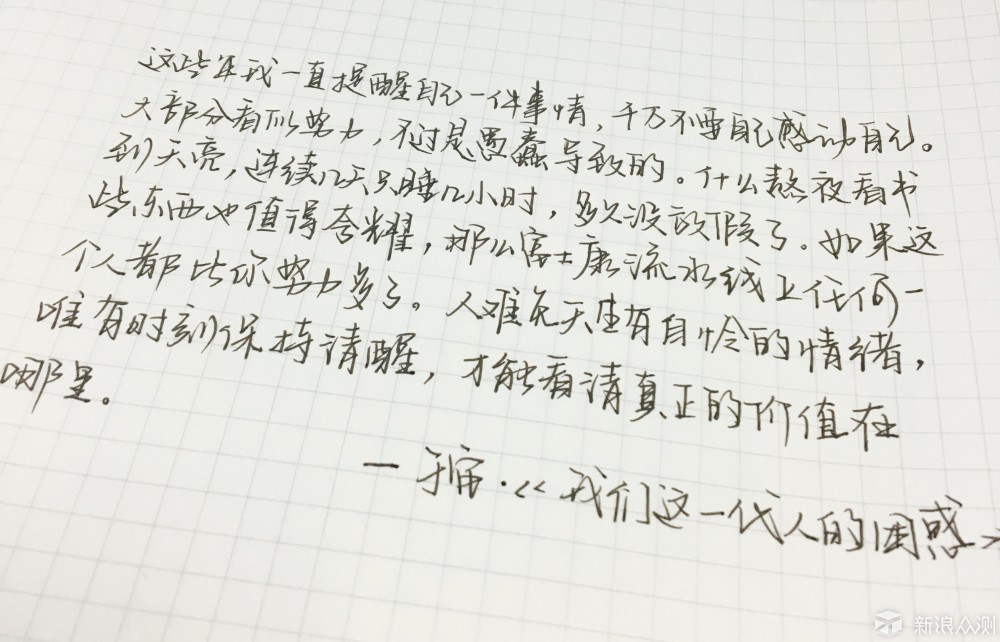 这些年我一直提醒自己一件事情，千万不要自己感动自己。
大部分看似努力，不过是愚蠢导致的。什么熬夜看书
到天亮，连续几天只睡几小时，多久没放假了。如果这
些东西也值得夸耀，那么富士康流水线上任何一
个人都比你努力多了。人难免天生有自怜的情绪，
唯有时刻保持清醒，才能看清真正的价值在
哪里。
一于宙·《我们这一代人的困惑》
新浪众测